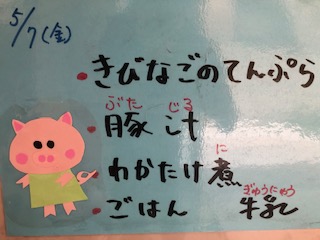 5/7(金)
・きびなごのてんぷら
ぶた じる
・豚 汁
に
わかたけ煮
ぎゅうにゅう
・ごはん 牛乳